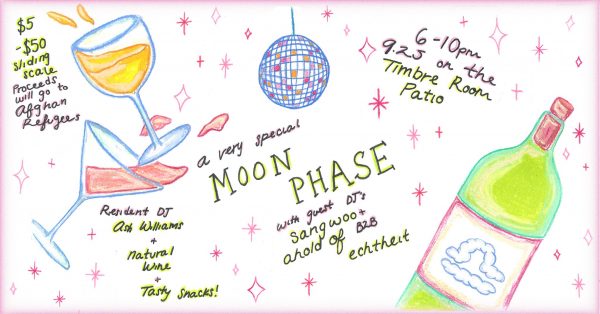 $5
-$50
sliding
scale
Proceeds
will go to
Afghan
Refugees
6-10pm
9.25 on the
Timbre Room
Patio
a very special
MOON
PHASE
with guest DJ's
Sangwoo +
ahold of B2B
echtheit
Resident DJ
Ash Williams
+
natural
wine
+
Tasty snacks!